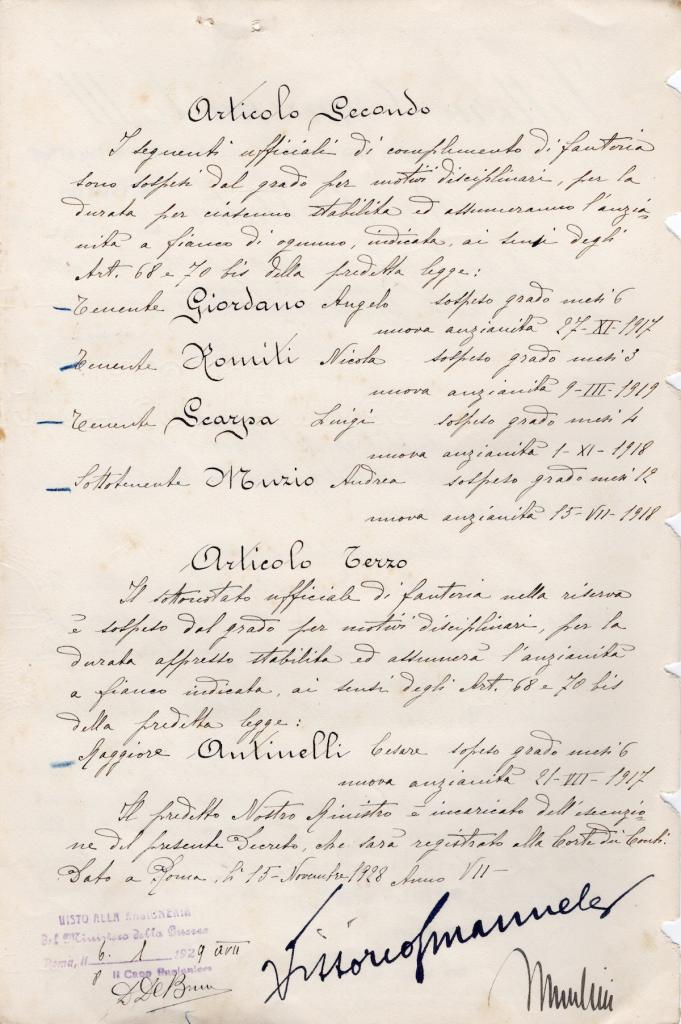 Articolo Secondo
I seguenti ufficiali di complemento di fanteria
sono sospesi dal grado per motivi disciplinari, per la
durata per ciascuno stabilita ed assumeranno l'anzia-
nità a fianco di ognuno, indicata, ai sensi degli
Art. 68 e 70 bis della predetta legge:
Tenente Giordano Angelo sospeso grado mesi 6
nuova anzianità 27-XI-1917
Tenente Romiti Nicola sospeso grado mesi 3
nuova anzianità 9-III-1919
Tenente Scarpa Luigi sospeso grado mesi 4
nuova anzianità 1-XI-1918
Sottotenente Muzio Andrea sospeso grado mesi 12
nuova anzianità 15-VII-1918
Articolo Terzo
Il sottonotato ufficiale di fanteria nella riserva
è sospeso dal grado per motivi disciplinari, per la
durata appresso stabilita ed assumerà l'anzianità
a fianco indicata, ai sensi degli Art. 68 e 70 bis
della predetta legge:
Maggiore Antinelli Cesare sospeso grado mesi 6
nuova anzianità 21-VII-1917
Il predetto Nostro Ministro è incaricato dell'esecuzio-
ne del presente Decreto, che sarà registrato alla Corte dei Conti.
Dato a Roma, li 15-Novembre 1928 Anno VII-
VISTO ALLA RAGIONERIA
del Ministero della Guerra
Roma, li 6. 1 1929
Il Capo Ragioniere
Vittorio Emanuele
Mussolini